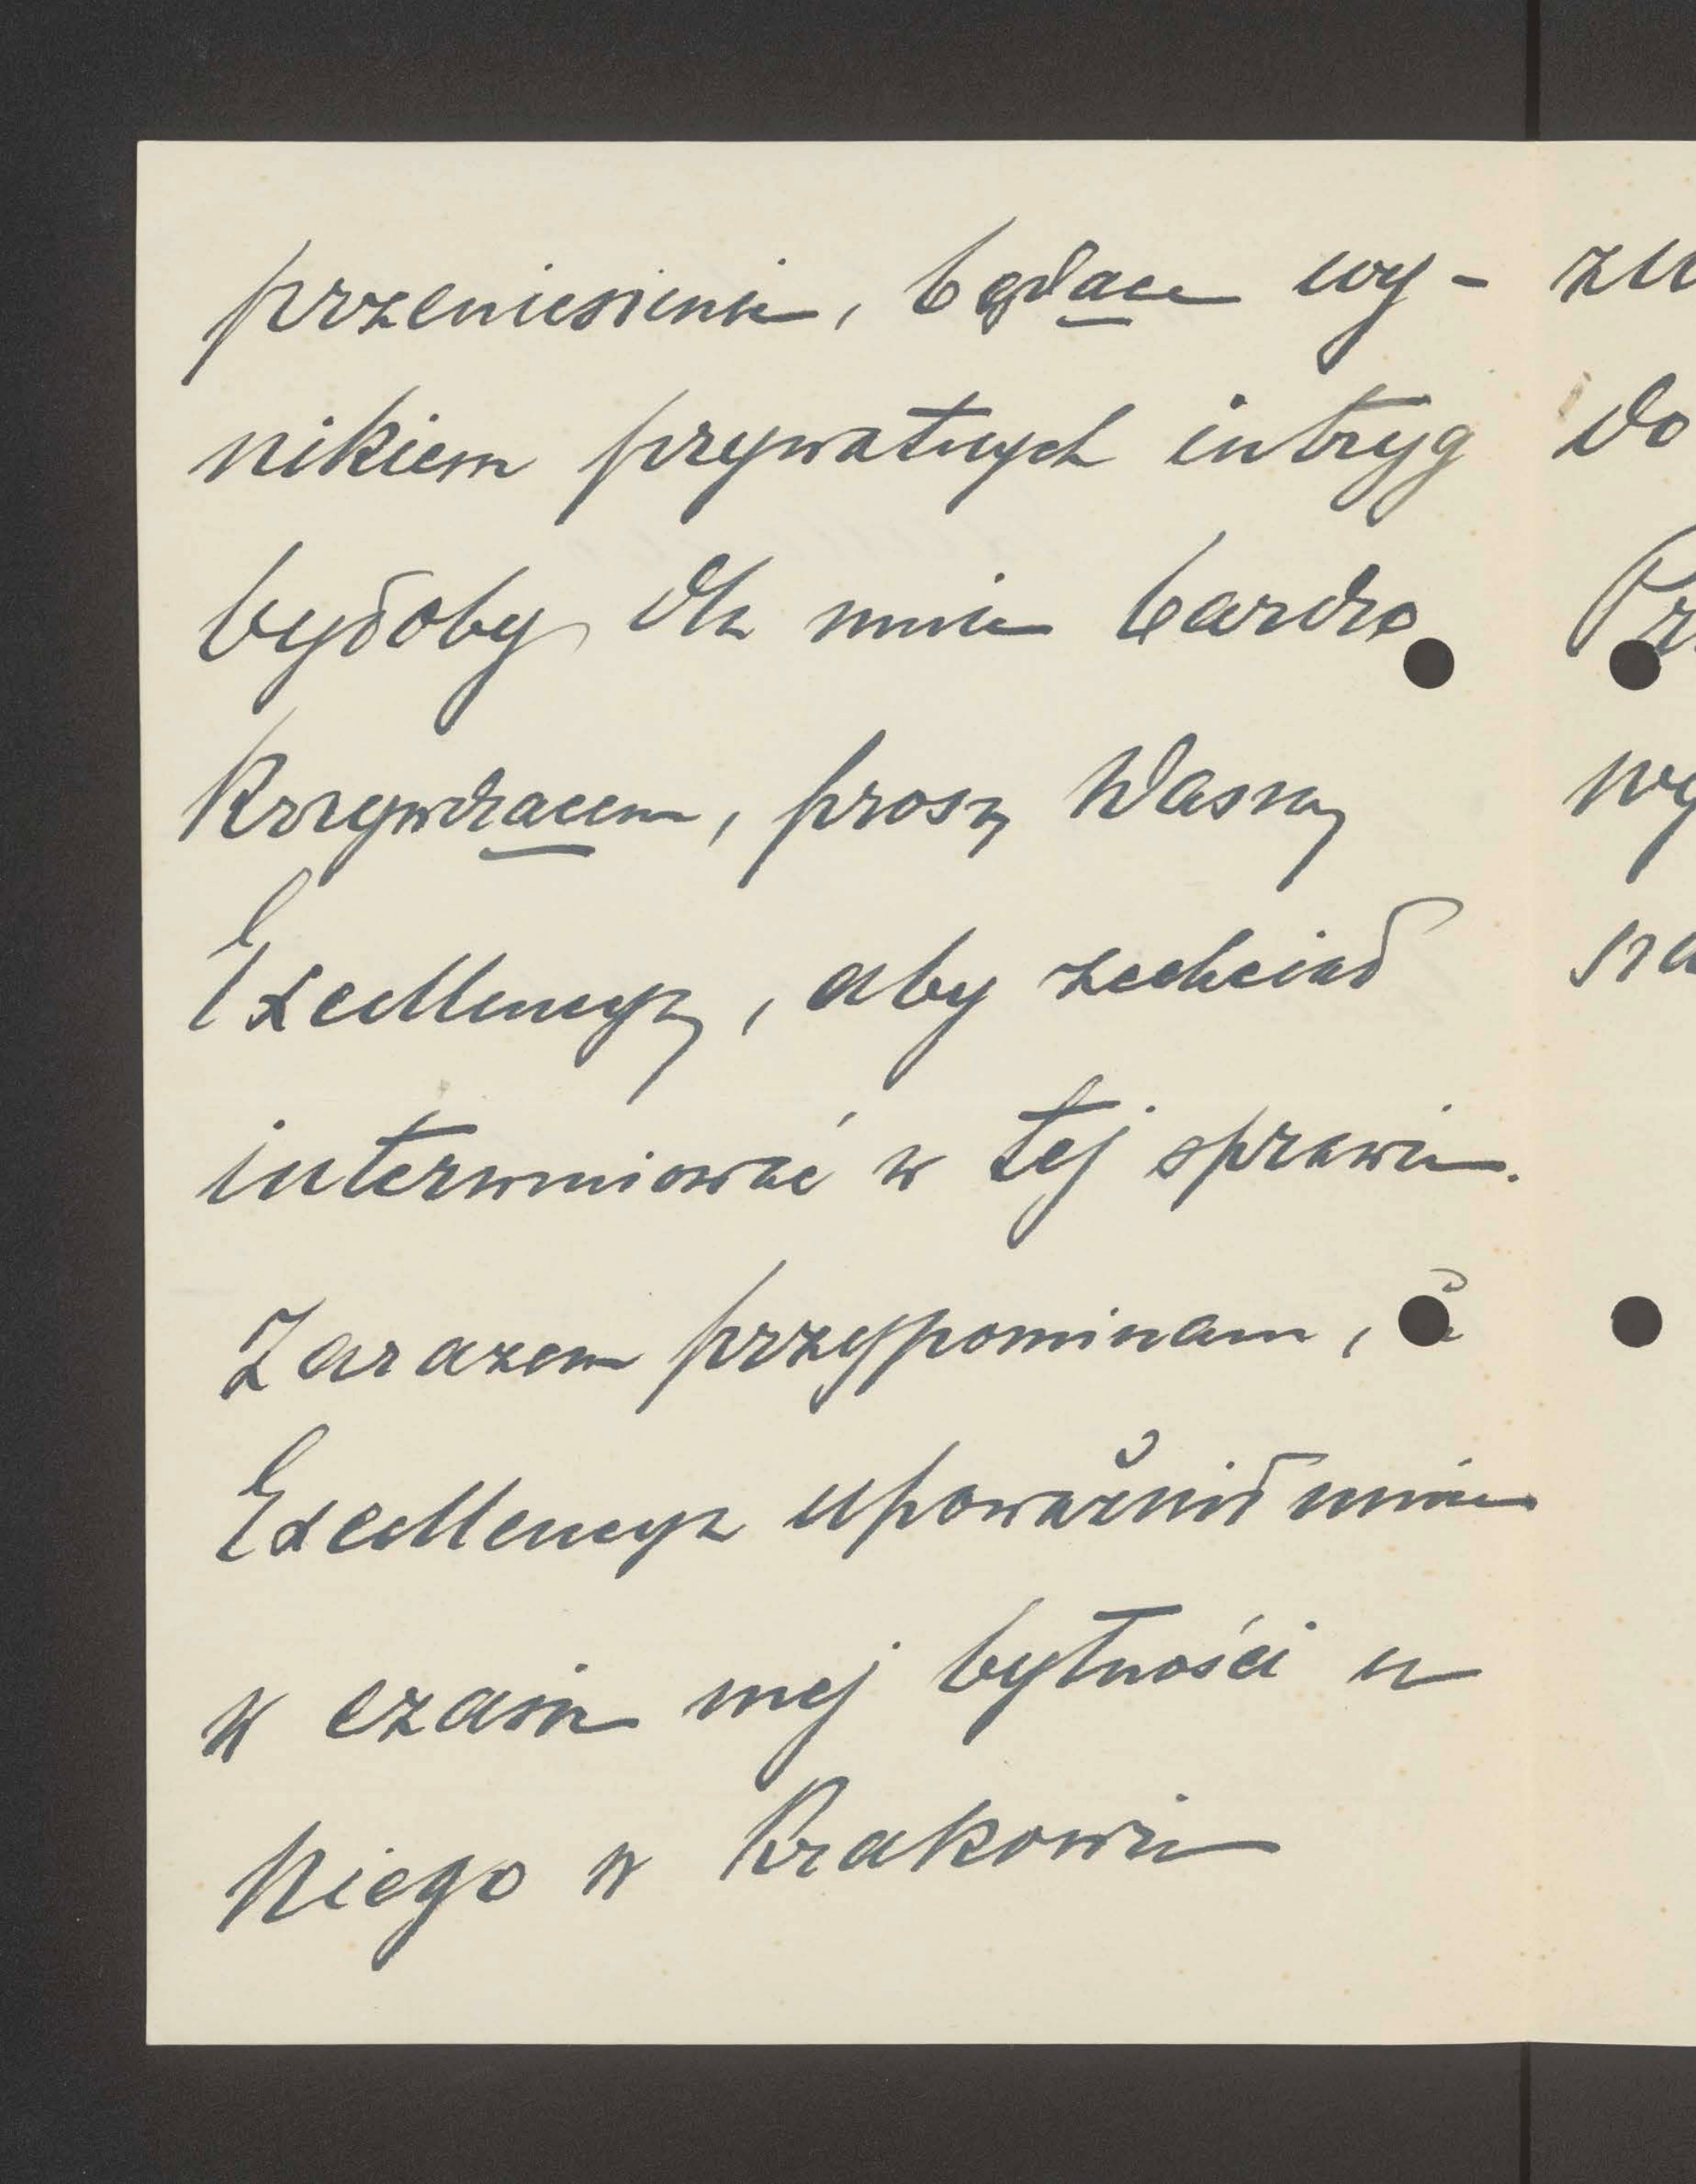 przeniesienie, będące wy-
nikiem prywatnych intryg
byłoby dla mnie bardzo
krzywdzącem, proszę Waszą
Excellencyę, aby zechciał
interweniować w tej sprawie.
Zarazem przypominam, że
Excellencya upoważnił mnie
w czasie mej bytności u
Niego w Krakowie
do